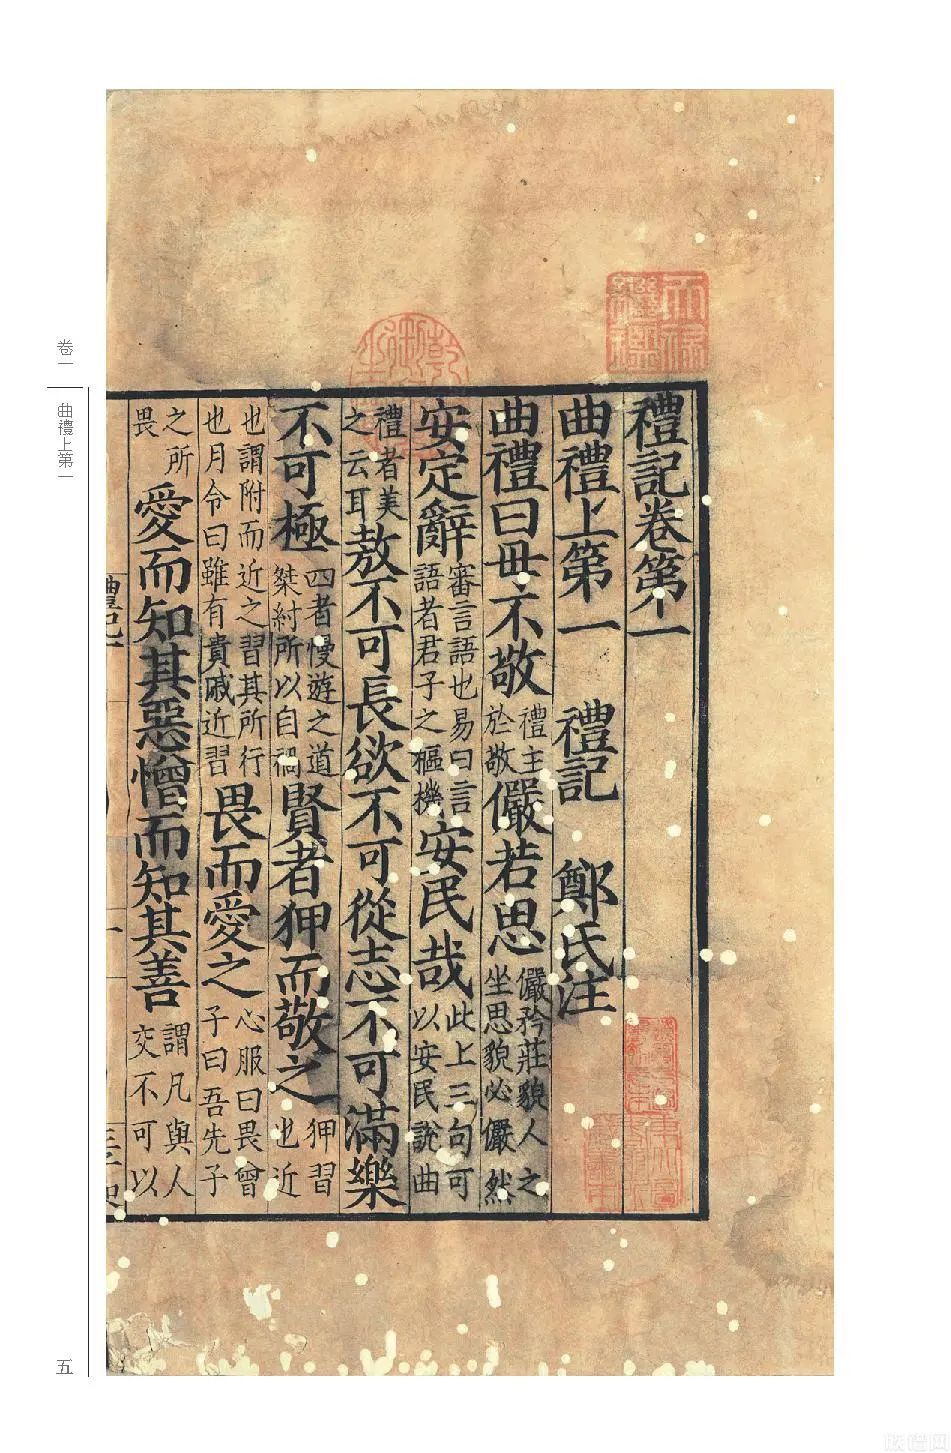 禮記卷第一
曲禮上第一 禮記 鄭氏注
曲禮曰毋不敬禮主於敬儼若思儼矜莊貌人之坐思貌必儼然
安定辭審言語也易曰言語者君子之樞機安民哉此上三句可以安民說曲
禮者美之云耳敖不可長欲不可從志不可滿樂
不可極四者慢遊之道桀紂所以自禍賢者狎而敬之狎習也近
也謂附而近之習其所行也月令曰雖有貴戚近習畏而愛之心服曰畏曾子曰吾先子
之所畏愛而知其惡憎而知其善謂凡與人交不可以
卷一
曲禮上第一
五